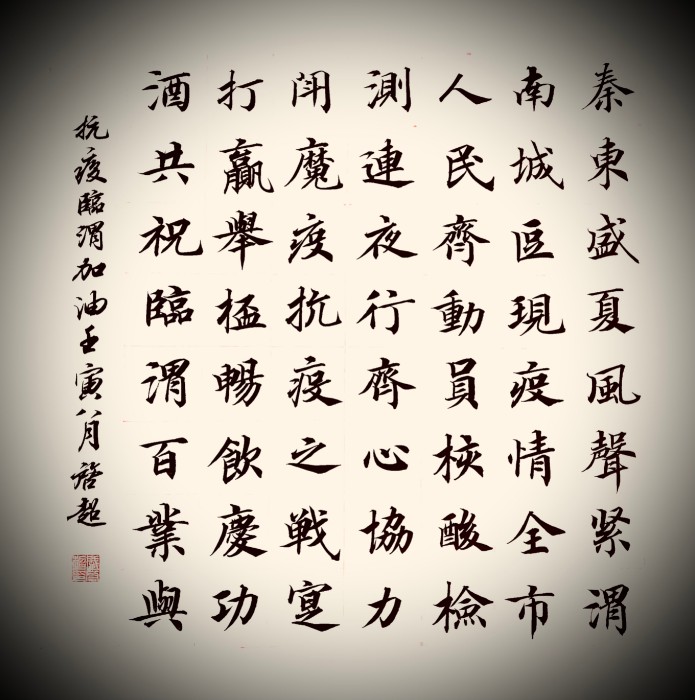 秦東盛夏風聲紧渭
南城區現疫情全市
人民齊動員核酸檢
測連夜行齊心協力
魔疫抗疫之戦寔
打贏舉暢飲慶功
酒共祝臨渭百業興
抗疫臨渭加油壬寅八月超